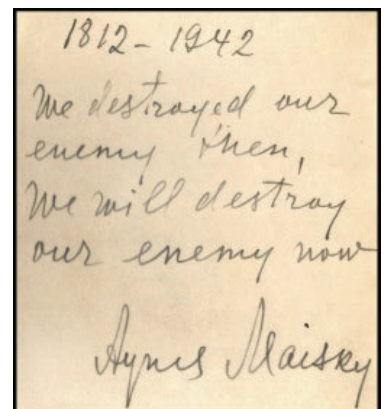 1812 - 1942
We destroyed our
enemy then,
We will destroy
our enemy now
Agnes Maisky